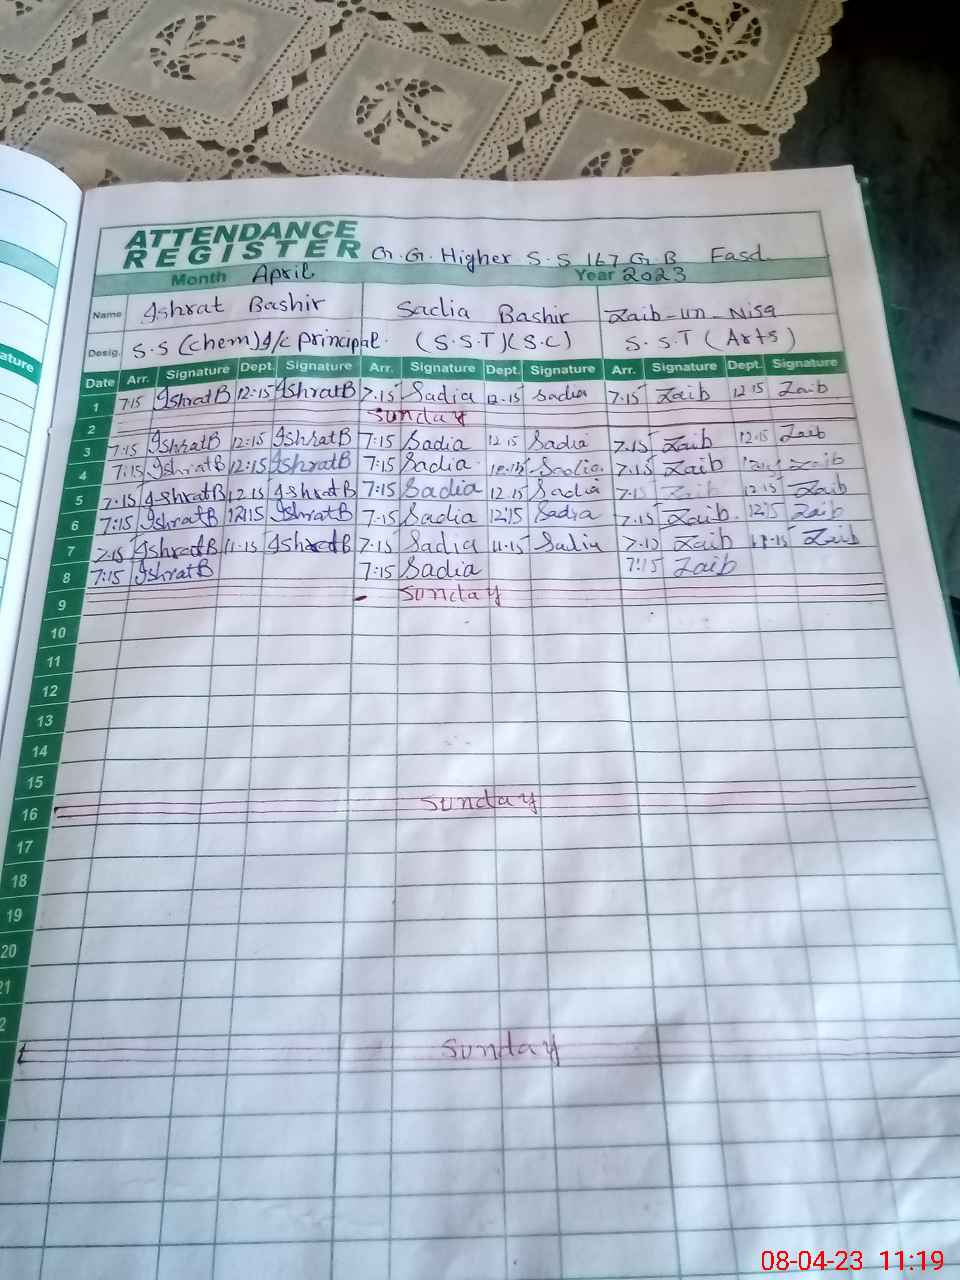 ATTENDANCE
REGISTER G.G. Higher S.S 167 G.B Fasd.
Month April Year 2023
Name Ishrat Bashir Sadia Bashir Zaib-un-Nisa
Desig. S.S (Chem) I/c principal. (S.S.T)(S.C) S.S.T (Arts)
Date Arr. Signature Dept. Signature Arr. Signature Dept. Signature Arr. Signature Dept. Signature
1 7:15 IshratB 12:15 IshratB 7.15 Sadia 12.15 Sadia 7.15 Zaib 12 15 Zaib
2 Sunday
3 7:15 IshratB 12:15 IshratB 7:15 Sadia 12.15 Sadia 7.15 Zaib 12.15 Zaib
4 7:15 IshratB 12:15 IshratB 7:15 Sadia Sadia 7.15 Zaib Zaib
5 7:15 IshratB 12.15 IshratB 7:15 Sadia 12.15 Sadia 7.15 Zaib 12.15 Zaib
6 7:15 IshratB 12:15 IshratB 7.15 Sadia 12:15 Sadia 7.15 Zaib. 12:15 Zaib
7 7.15 IshratB 11.15 IshratB 7.15 Sadia 11.15 Sadia 7.15 Zaib 11.15 Zaib
8 7:15 IshratB 7:15 Sadia 7:15 Zaib
9 Sunday
10
11
12
13
14
15
16 Sunday
17
18
19
20
21
2
Sunday
ature
08-04-23 11:19